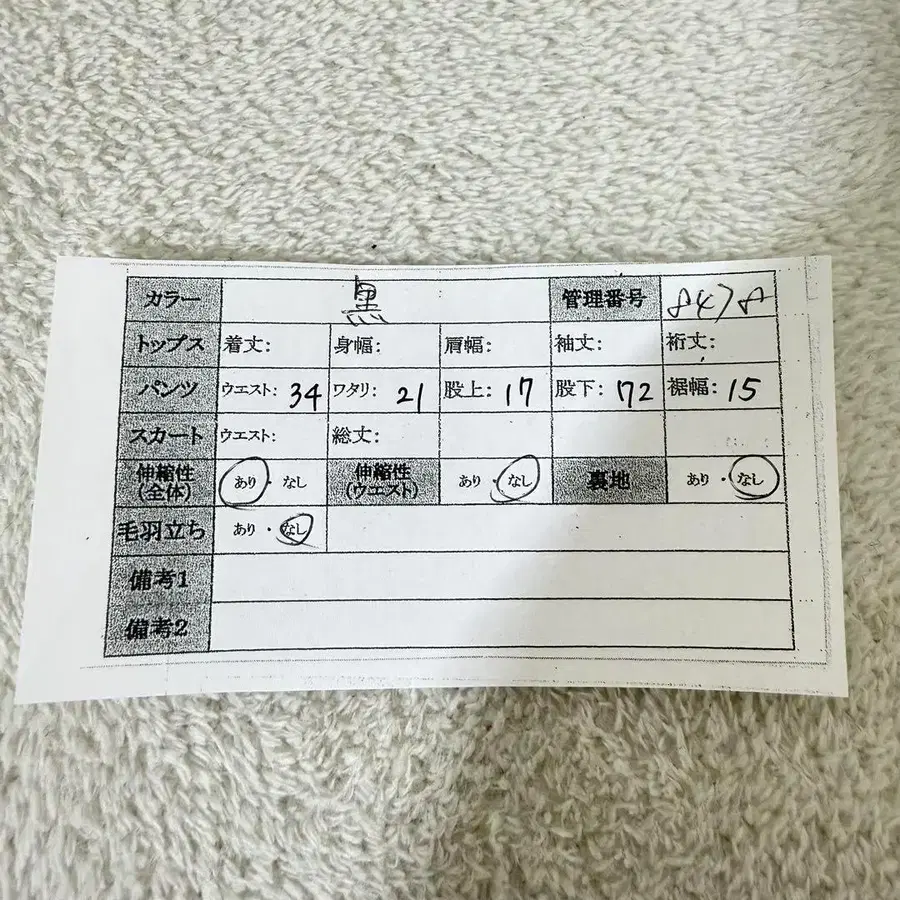 カラー 黒 管理番号 8478
トップス 着丈: 身幅: 肩幅: 袖丈: 裄丈:
パンツ ウエスト: 34 ワタリ: 21 股上: 17 股下: 72 裾幅: 15
スカート ウエスト: 総丈:
伸縮性(全体) あり・なし 伸縮性(ウエスト) あり・なし 裏地 あり・なし
毛羽立ち あり・なし
備考1
備考2